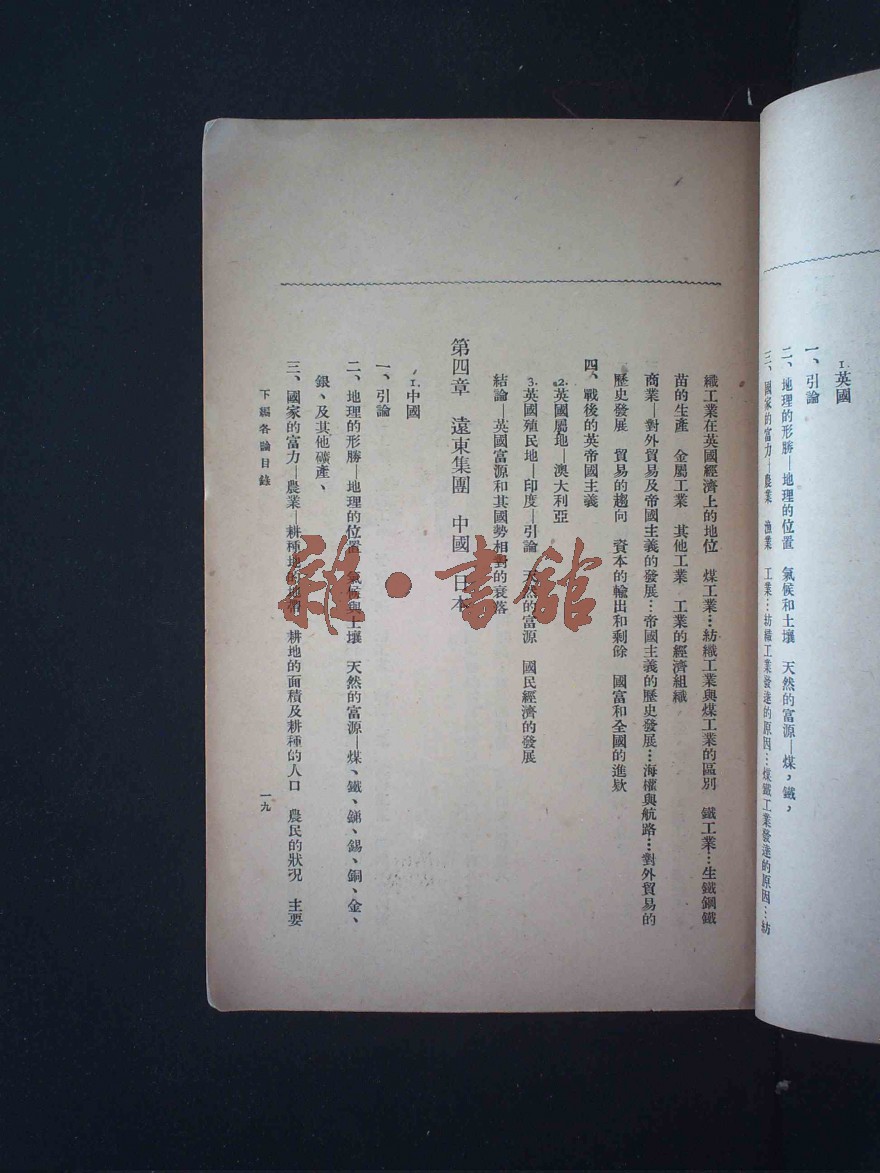 1.英國
一、引論
二、地理的形勝—地理的位置　氣候和土壤　天然的富源—煤，鐵，
三、國家的富力—農業　漁業　工業…紡織工業發達的原因…煤鐵工業發達的原因…紡
織工業在英國經濟上的地位　煤工業…紡織工業與煤工業的區別　鐵工業…生鐵鋼鐵
苗的生產　金屬工業　其他工業　工業的經濟組織
商業—對外貿易及帝國主義的發展…帝國主義的歷史發展…海權與航路…對外貿易的
歷史發展　貿易的趨向　資本的輸出和剩餘　國富和全國的進欵
四、戰後的英帝國主義
2.英國屬地—澳大利亞
3.英國殖民地—印度—引論　天然的富源　國民經濟的發展
結論—英國富源和其國勢相對的衰落
第四章　遠東集團　中國　日本
1.中國
一、引論
二、地理的形勝—地理的位置　氣候與土壤　天然的富源—煤、鐵、銻、錫、銅、金、
銀、及其他礦產、
三、國家的富力—農業—耕種地的地帶　耕地的面積及耕種的人口　農民的狀況　主要
下編各論目錄
一九
雜·書館